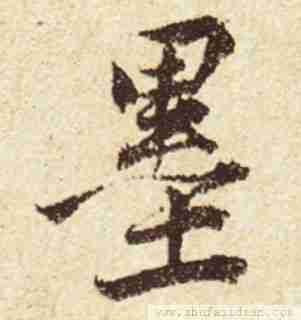 墨
www.shufazidian.com